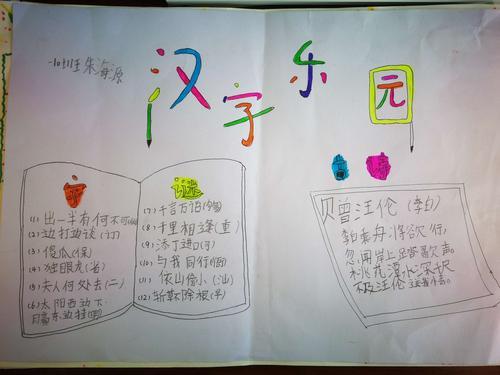 汉字乐园
字
谜
(1) 出一半有何不可
(2) 边打边谈(订)
(3) 傻瓜(保)
(4) 独眼龙(省)
(5) 夫人何处去(二)
(6) 太阳西边下
月亮东边挂(明)
(7) 千言万语(够)
(8) 千里相逢(重)
(9) 添丁进口(可)
(10) 与我同行(衙)
(11) 依山傍水(汕)
(12) 斩草除根(早)
贝曾汪伦 (李白)
李白乘舟将欲行,
忽闻岸上踏歌声。
桃花潭水深千尺